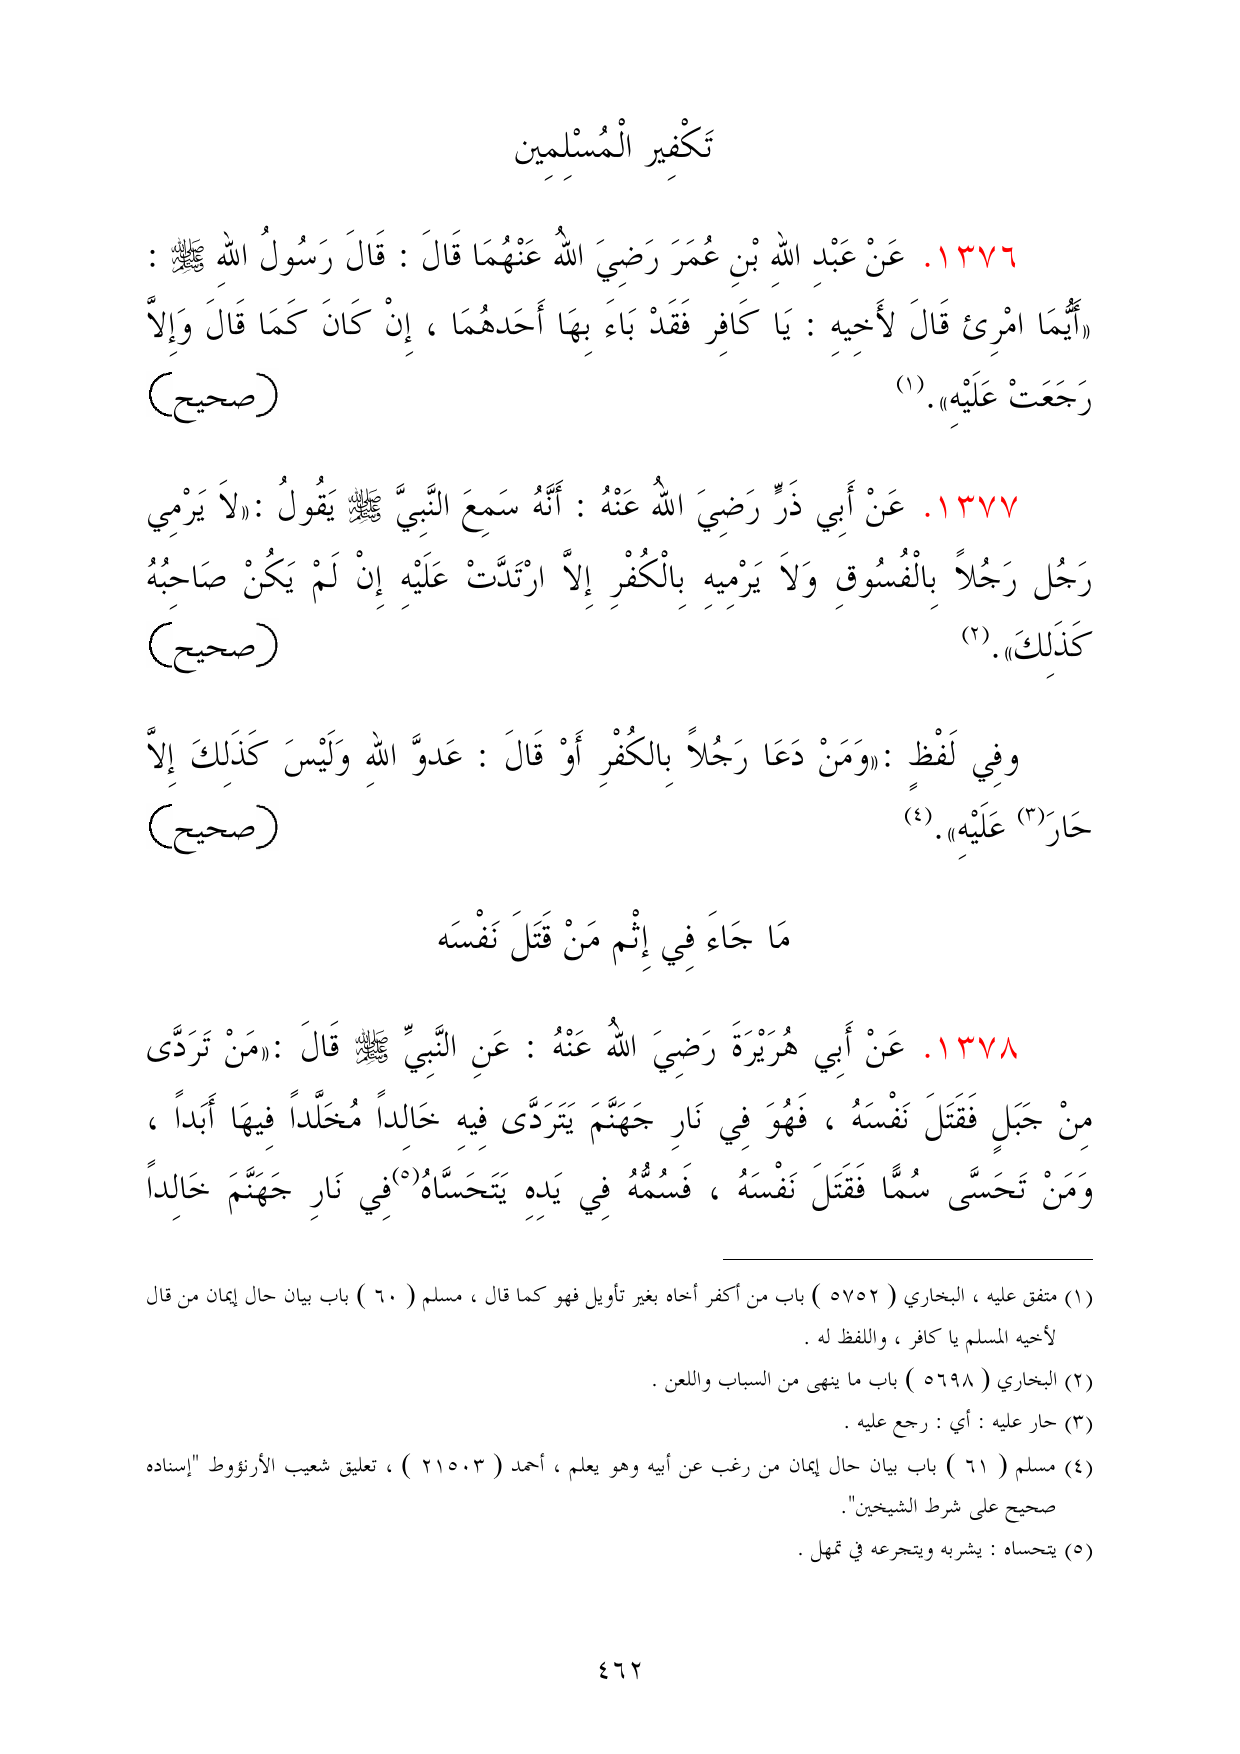 تَكْفِير الْمُسْلِمِين
١٣٧٦. عَنْ عَبْدِ اللهِ بْنِ عُمَرَ رَضِيَ اللهُ عَنْهُمَا قَالَ : قَالَ رَسُولُ اللهِ ﷺ :
«أَيُّمَا امْرِئ قَالَ لأَخِيهِ : يَا كَافِر فَقَدْ بَاءَ بِهَا أَحَدهُمَا ، إِنْ كَانَ كَمَا قَالَ وَإِلاَّ
رَجَعَتْ عَلَيْهِ».(١) (صحيح)
١٣٧٧. عَنْ أَبِي ذَرٍّ رَضِيَ اللهُ عَنْهُ : أَنَّهُ سَمِعَ النَّبِيَّ ﷺ يَقُولُ :«لاَ يَرْمِي
رَجُل رَجُلاً بِالْفُسُوقِ وَلاَ يَرْمِيهِ بِالْكُفْرِ إِلاَّ ارْتَدَّتْ عَلَيْهِ إِنْ لَمْ يَكُنْ صَاحِبُهُ
كَذَلِكَ».(٢) (صحيح)
وفِي لَفْظٍ :«وَمَنْ دَعَا رَجُلاً بِالكُفْرِ أَوْ قَالَ : عَدوَّ اللهِ وَلَيْسَ كَذَلِكَ إِلاَّ
حَارَ(٣) عَلَيْهِ».(٤) (صحيح)
مَا جَاءَ فِي إِثْم مَنْ قَتَلَ نَفْسَه
١٣٧٨. عَنْ أَبِي هُرَيْرَةَ رَضِيَ اللهُ عَنْهُ : عَنِ النَّبِيِّ ﷺ قَالَ :«مَنْ تَرَدَّى
مِنْ جَبَلٍ فَقَتَلَ نَفْسَهُ ، فَهُوَ فِي نَارِ جَهَنَّمَ يَتَرَدَّى فِيهِ خَالِداً مُخَلَّداً فِيهَا أَبَداً ،
وَمَنْ تَحَسَّى سُمًّا فَقَتَلَ نَفْسَهُ ، فَسُمُّهُ فِي يَدِهِ يَتَحَسَّاهُ(٥)فِي نَارِ جَهَنَّمَ خَالِداً
(١) متفق عليه ، البخاري ( ٥٧٥٢ ) باب من أكفر أخاه بغير تأويل فهو كما قال ، مسلم ( ٦٠ ) باب بيان حال إيمان من قال
لأخيه المسلم يا كافر ، واللفظ له .
(٢) البخاري ( ٥٦٩٨ ) باب ما ينهى من السباب واللعن .
(٣) حار عليه : أي : رجع عليه .
(٤) مسلم ( ٦١ ) باب بيان حال إيمان من رغب عن أبيه وهو يعلم ، أحمد ( ٢١٥٠٣ ) ، تعليق شعيب الأرنؤوط "إسناده
صحيح على شرط الشيخين".
(٥) يتحساه : يشربه ويتجرعه في تمهل .
٤٦٢